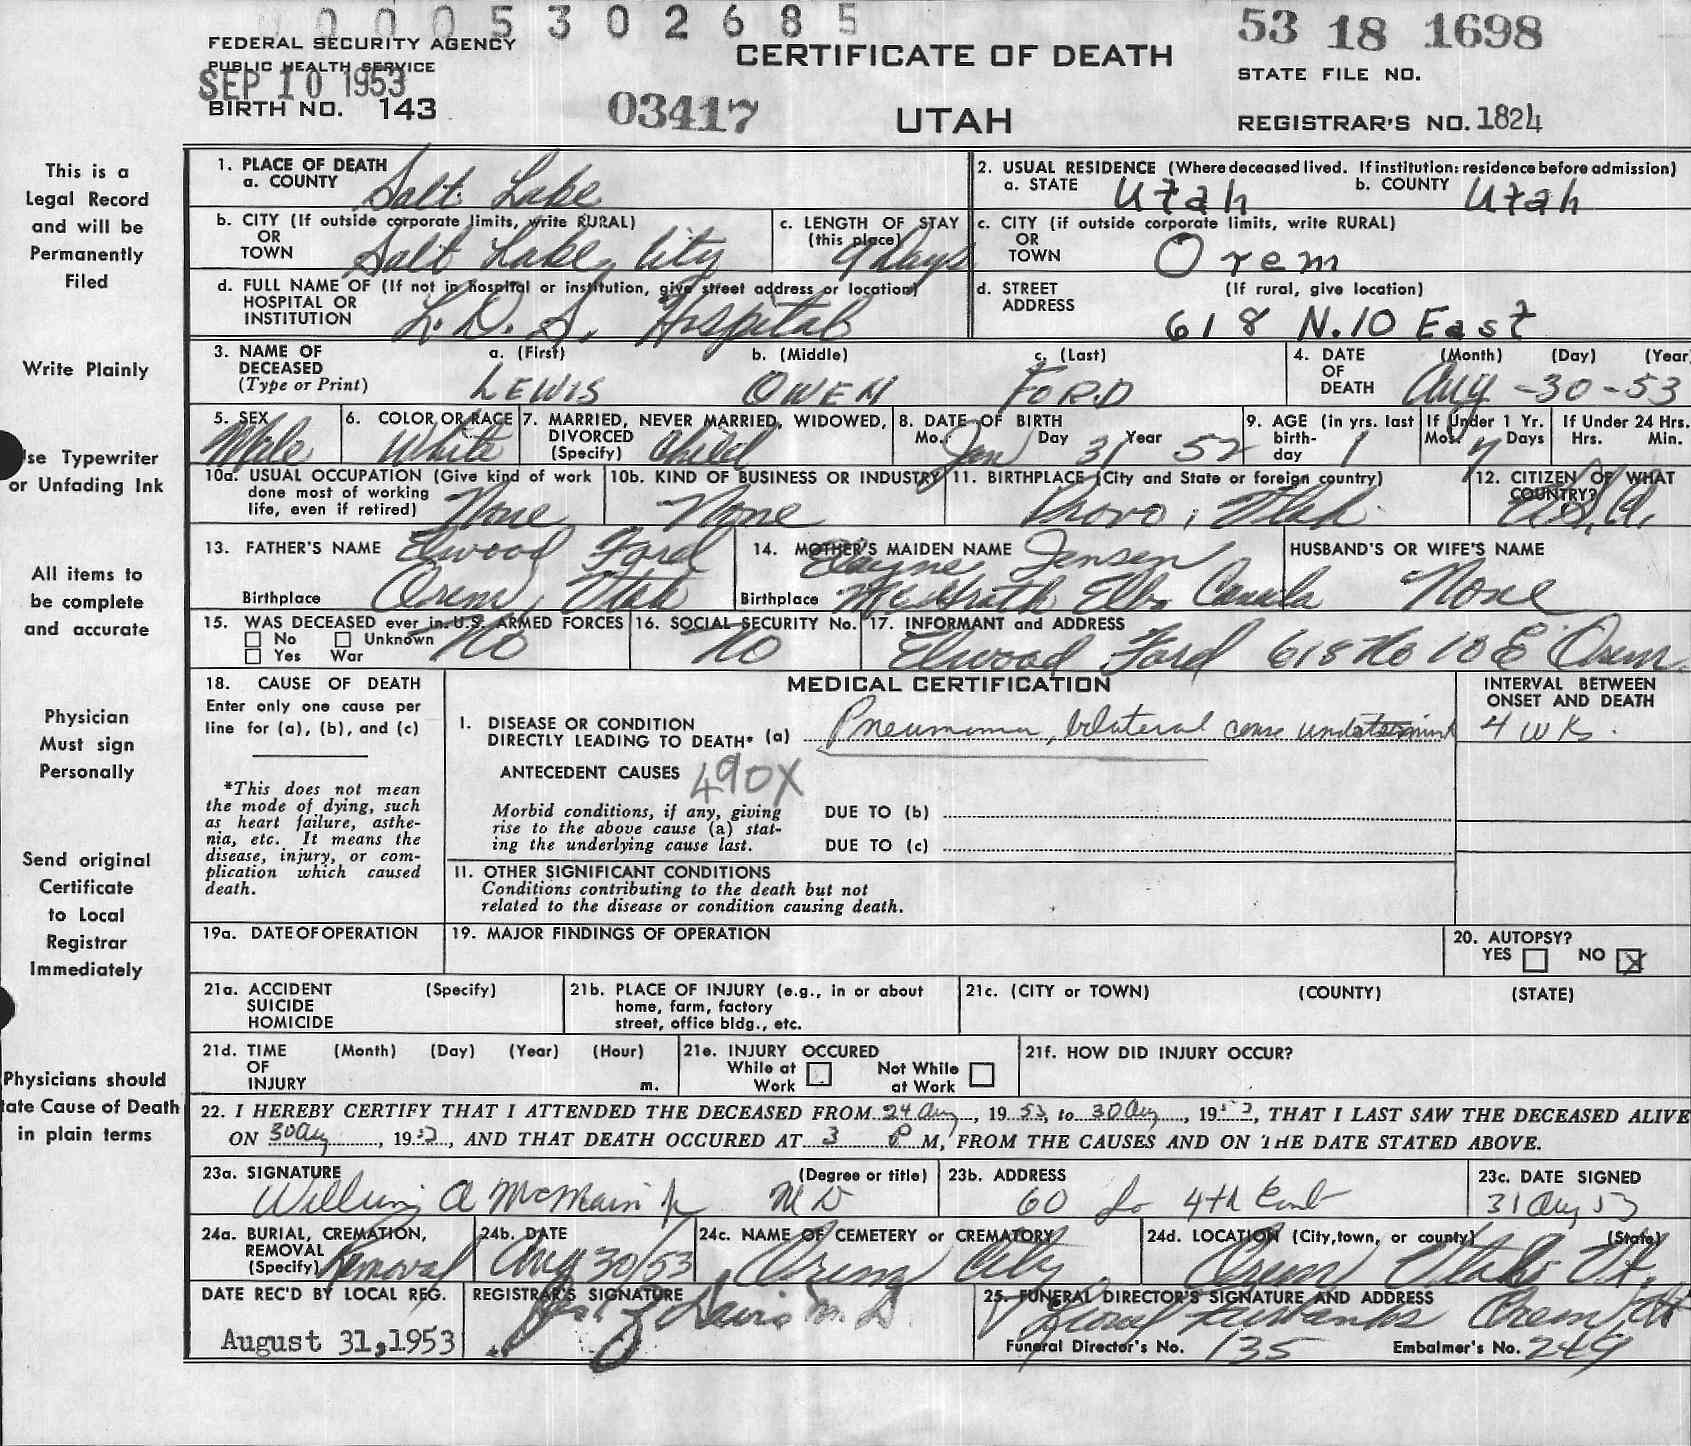 0005302685
53 18 1698
FEDERAL SECURITY AGENCY
PUBLIC HEALTH SERVICE
SEP 10 1953
CERTIFICATE OF DEATH
STATE FILE NO.
BIRTH NO. 143
03417
UTAH
REGISTRAR'S NO. 1824
This is a
Legal Record
and will be
Permanently
Filed
Write Plainly
se Typewriter
or Unfading Ink
All items to
be complete
and accurate
Physician
Must sign
Personally
Send original
Certificate
to Local
Registrar
Immediately
Physicians should
tate Cause of Death
in plain terms
1. PLACE OF DEATH
a. COUNTY Salt Lake
2. USUAL RESIDENCE (Where deceased lived. If institution: residence before admission)
a. STATE Utah b. COUNTY Utah
b. CITY (If outside corporate limits, write RURAL)
OR
TOWN Salt Lake City
c. LENGTH OF STAY
(this place) 9 Days
c. CITY (if outside corporate limits, write RURAL)
OR
TOWN Orem
d. FULL NAME OF (If not in hospital or institution, give street address or location)
HOSPITAL OR
INSTITUTION L.D.S. Hospital
d. STREET (If rural, give location)
ADDRESS 618 N. 10 East
3. NAME OF
DECEASED
(Type or Print)
a. (First) b. (Middle) c. (Last)
LEWIS OWEN FORD
4. DATE (Month) (Day) (Year
OF
DEATH Aug-30-53
5. SEX
Male
6. COLOR OR RACE
White
7. MARRIED, NEVER MARRIED, WIDOWED,
DIVORCED
(Specify) Child
8. DATE OF BIRTH
Mo. Jan Day 31 Year 52
9. AGE (in yrs. last
birth-
day 1
If Under 1 Yr.
Mos. 7 Days
If Under 24 Hrs.
Hrs. Min.
10a. USUAL OCCUPATION (Give kind of work
done most of working
life, even if retired) None
10b. KIND OF BUSINESS OR INDUSTRY
None
11. BIRTHPLACE (City and State or foreign country)
Provo, Utah
12. CITIZEN OF WHAT
COUNTRY? U.S.A.
13. FATHER'S NAME Elwood Ford
Birthplace Orem, Utah
14. MOTHER'S MAIDEN NAME Jensen
Birthplace Canada
HUSBAND'S OR WIFE'S NAME
None
15. WAS DECEASED ever in U.S. ARMED FORCES
No Unknown
Yes War
No
16. SOCIAL SECURITY No.
No
17. INFORMANT and ADDRESS
Elwood Ford 618 No 10 E Orem
18. CAUSE OF DEATH
Enter only one cause per
line for (a), (b), and (c)
*This does not mean
the mode of dying, such
as heart failure, asthe-
nia, etc. It means the
disease, injury, or com-
plication which caused
death.
MEDICAL CERTIFICATION
INTERVAL BETWEEN
ONSET AND DEATH
I. DISEASE OR CONDITION
DIRECTLY LEADING TO DEATH* (a) Pneumonia, bilateral cause undetermined 4 wks.
ANTECEDENT CAUSES 490X
Morbid conditions, if any, giving
rise to the above cause (a) stat-
ing the underlying cause last.
DUE TO (b)
DUE TO (c)
11. OTHER SIGNIFICANT CONDITIONS
Conditions contributing to the death but not
related to the disease or condition causing death.
19a. DATE OF OPERATION
19. MAJOR FINDINGS OF OPERATION
20. AUTOPSY?
YES NO X
21a. ACCIDENT (Specify)
SUICIDE
HOMICIDE
21b. PLACE OF INJURY (e.g., in or about
home, farm, factory
street, office bldg., etc.
21c. (CITY or TOWN) (COUNTY) (STATE)
21d. TIME (Month) (Day) (Year) (Hour)
OF
INJURY m.
21e. INJURY OCCURED
While at Work Not While at Work
21f. HOW DID INJURY OCCUR?
22. I HEREBY CERTIFY THAT I ATTENDED THE DECEASED FROM 24 Aug, 19 53, to 30 Aug, 1953, THAT I LAST SAW THE DECEASED ALIVE
ON 30 Aug, 1953, AND THAT DEATH OCCURED AT 3 P M, FROM THE CAUSES AND ON THE DATE STATED ABOVE.
23a. SIGNATURE (Degree or title)
William A McMain Jr MD
23b. ADDRESS
60 So 4th East
23c. DATE SIGNED
31 Aug 53
24a. BURIAL, CREMATION,
REMOVAL
(Specify) Removal
24b. DATE
Aug 30/53
24c. NAME OF CEMETERY or CREMATORY
Orem City
24d. LOCATION (City, town, or county) (State)
Orem Utah Ut.
DATE REC'D BY LOCAL REG.
August 31, 1953
REGISTRAR'S SIGNATURE
Davis M.D.
25. FUNERAL DIRECTOR'S SIGNATURE AND ADDRESS
Orem, Ut
Funeral Director's No. 135 Embalmer's No. 249